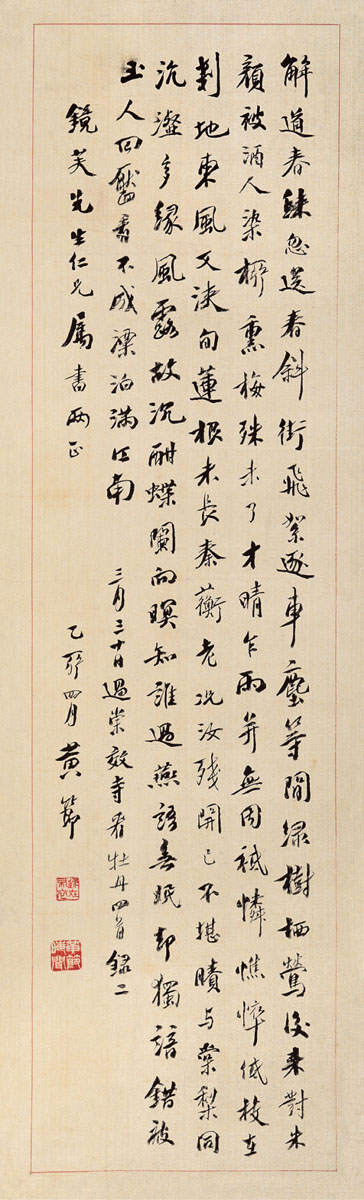 解道春歸忽送春斜街飛絮逐車塵等閒綠樹栖鶯後來對朱
顏被酒人染桺熏梅殊未了才晴乍雨并無因祗憐憔悴低枝在
剗地東風又浹旬蓮根未長秦蘅老況汝殘開已不堪賸与棠梨同
沆瀣多緣風露故沉酣蝶闌向暝知誰過燕語春眠却獨諳錯被
玉人回靨看不成漂泊滿江南 三月三十日過崇效寺看牡丹四首錄二
鏡芙先生仁兄属書兩正
乙 四月黃節